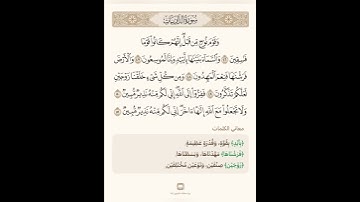 سُورَةُ الذَّارِيَاتِ
وَقَوْمَ نُوحٍ مِّن قَبْلُ ۖ إِنَّهُمْ كَانُوا۟ قَوْمًا
فَـٰسِقِينَ ٤٦ وَٱلسَّمَآءَ بَنَيْنَـٰهَا بِأَيْي۟دٍ وَإِنَّا لَمُوسِعُونَ ٤٧ وَٱلْأَرْضَ
فَرَشْنَـٰهَا فَنِعْمَ ٱلْمَـٰهِدُونَ ٤٨ وَمِن كُلِّ شَىْءٍ خَلَقْنَا زَوْجَيْنِ
لَعَلَّكُمْ تَذَكَّرُونَ ٤٩ فَفِرُّوٓا۟ إِلَى ٱللَّهِ ۖ إِنِّى لَكُم مِّنْهُ نَذِيرٌ مُّبِينٌ ٥٠
وَلَا تَجْعَلُوا۟ مَعَ ٱللَّهِ إِلَـٰهًا ءَاخَرَ ۖ إِنِّى لَكُم مِّنْهُ نَذِيرٌ مُّبِينٌ ٥١
معاني الكلمات
﴿بِأَيْيدٍ﴾ بِقُوَّةٍ، وَقُدْرَةٍ عَظِيمَةٍ.
﴿فَرَشْنَاهَا﴾ مَهَّدْنَاهَا، وَبَسَطْنَاهَا.
﴿زَوْجَيْنِ﴾ صِنْفَيْنِ، وَنَوْعَيْنِ مُخْتَلِفَيْنِ.